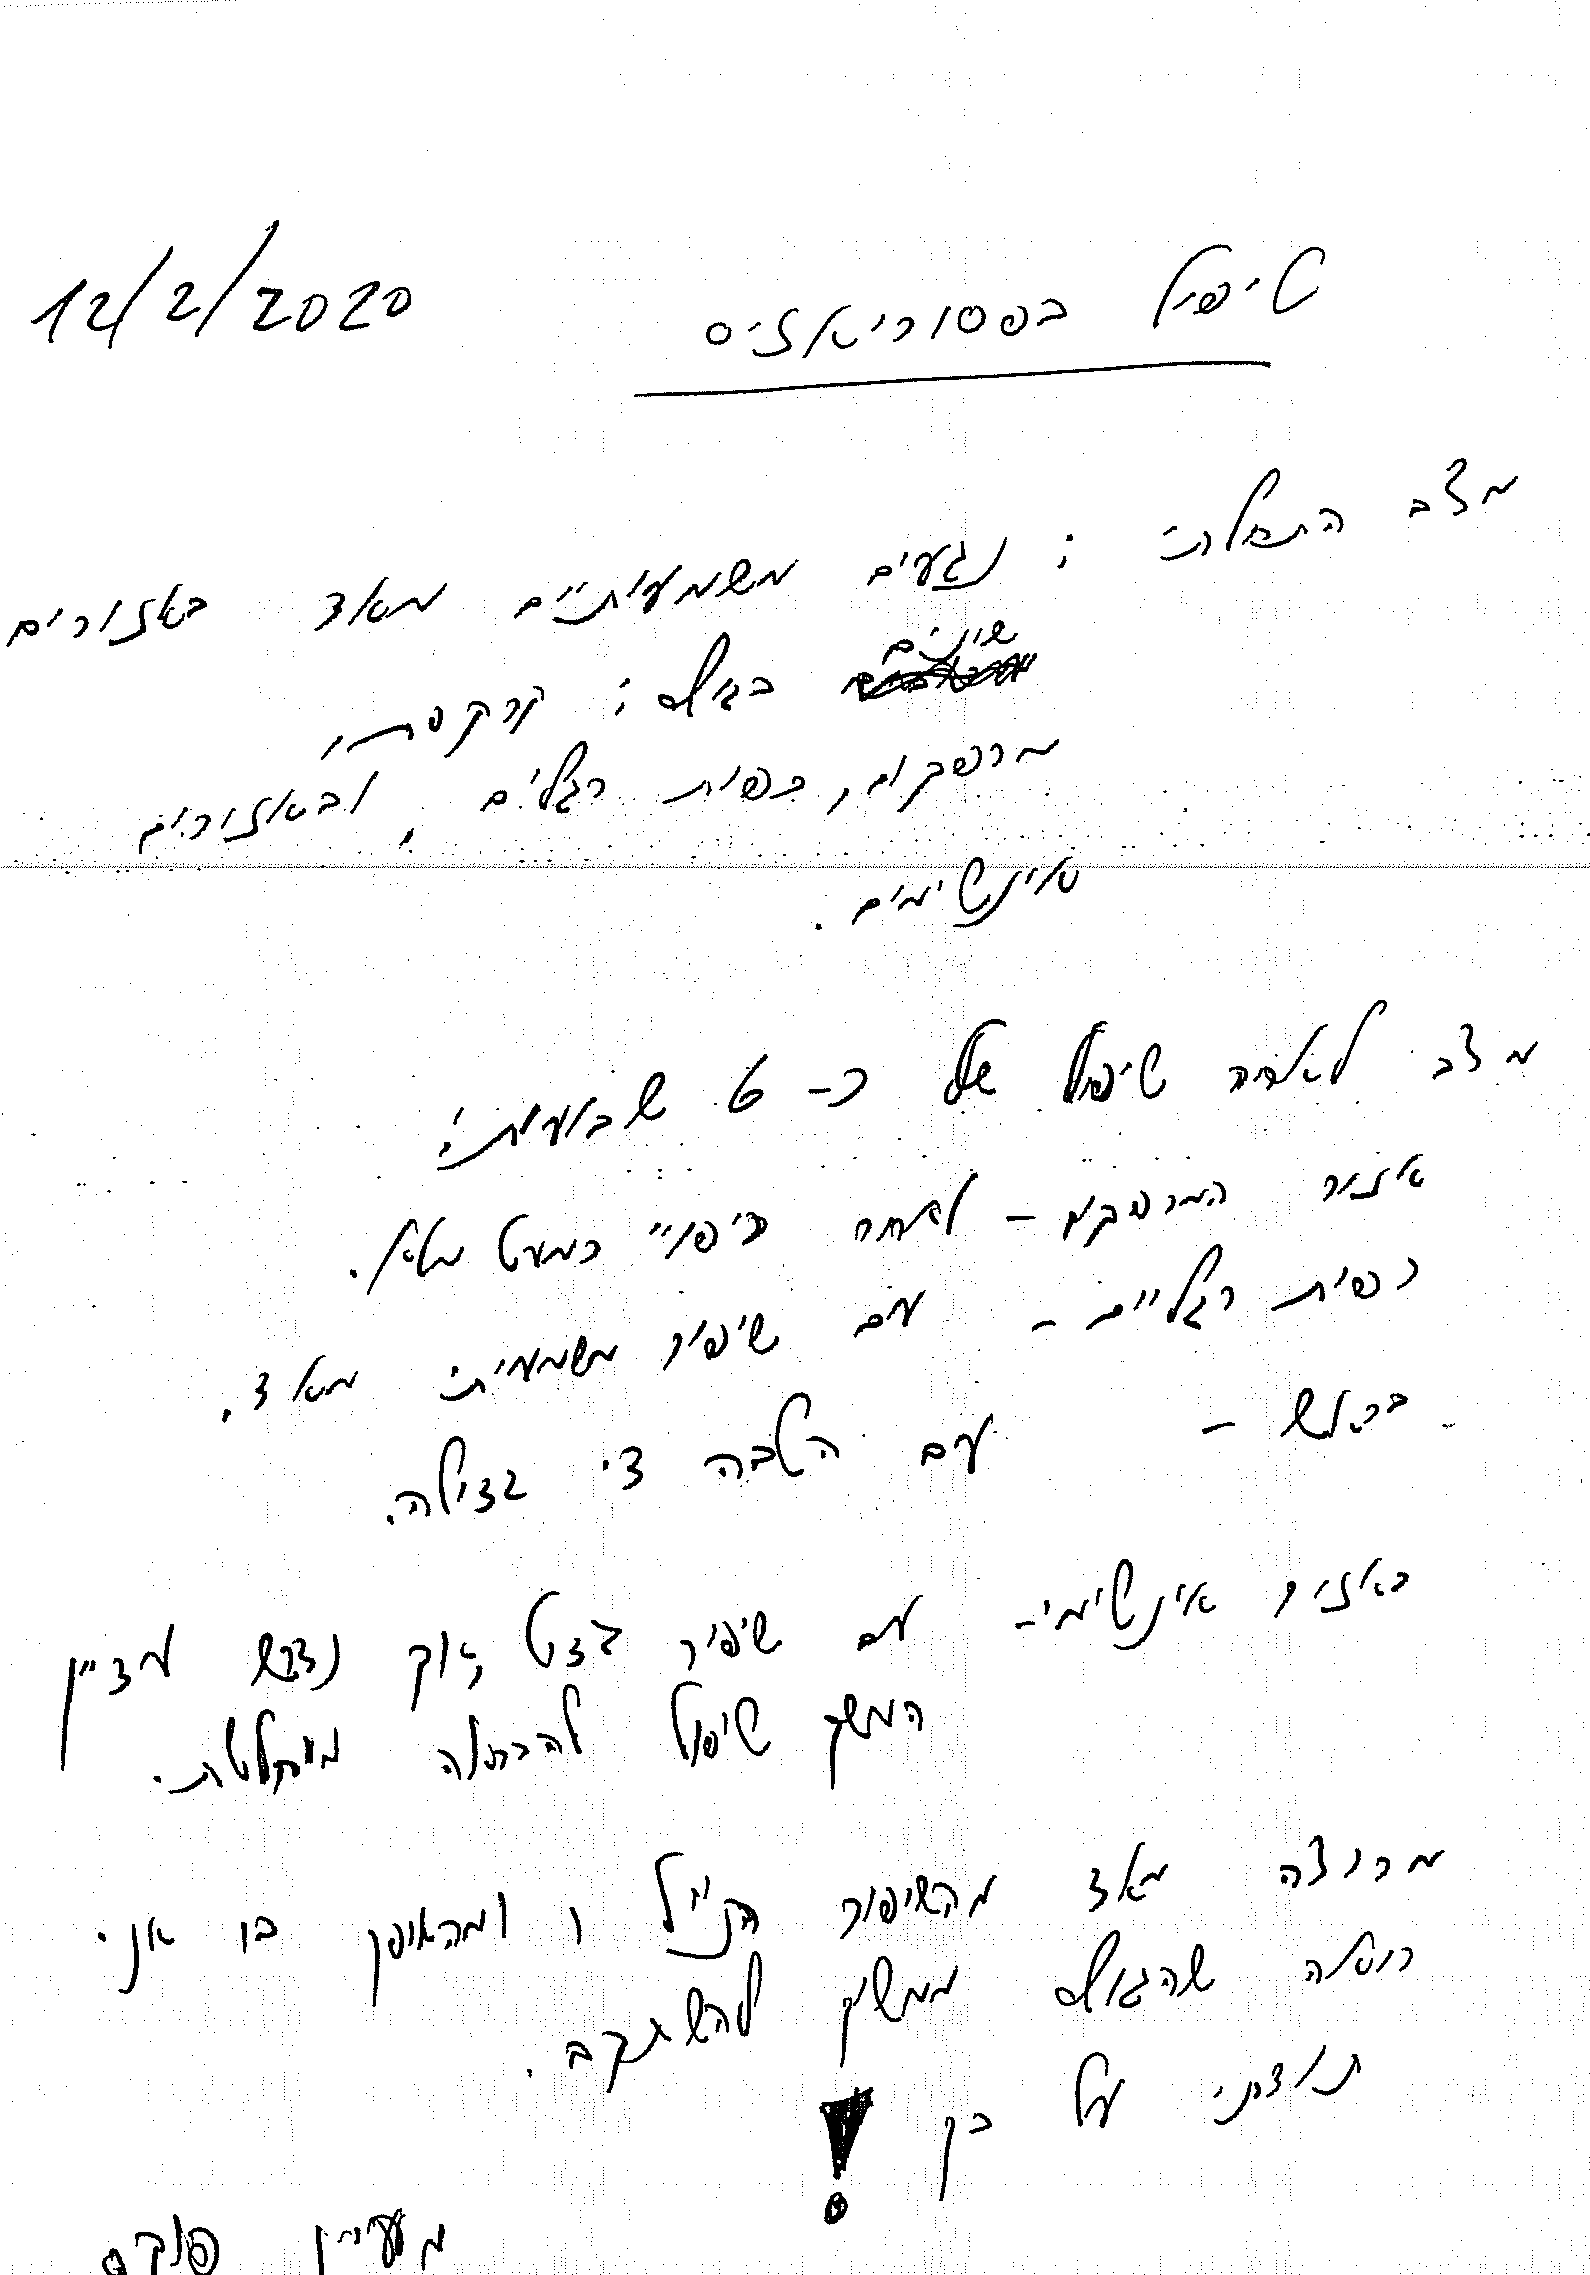 טיפול בפסוריאזיס 12/2/2020
מצב התחלתי: נגעים משמעותיים מאד באזורים
שונים בגוף: קרקפת,
מרפקים, כפות רגלים, ובאזורים
אינטימים.
מצב לאחר טיפול של כ- 6 שבועות:
אזור המרפקים - לאחר ריפוי כמעט מלא.
כפות רגליים - עם שיפור משמעותי מאד.
בראש - עם הטבה די גדולה.
באזור אינטימי - עם שיפור קטן, אך נדרש עדיין
המשך טיפול להבראה מוחלטת.
מרוצה מאד מהשיפור הנ"ל ו ומהאופן בו אני
רואה שהגוף ממשיך להשתקם.
תודתי על כך!
מעיין